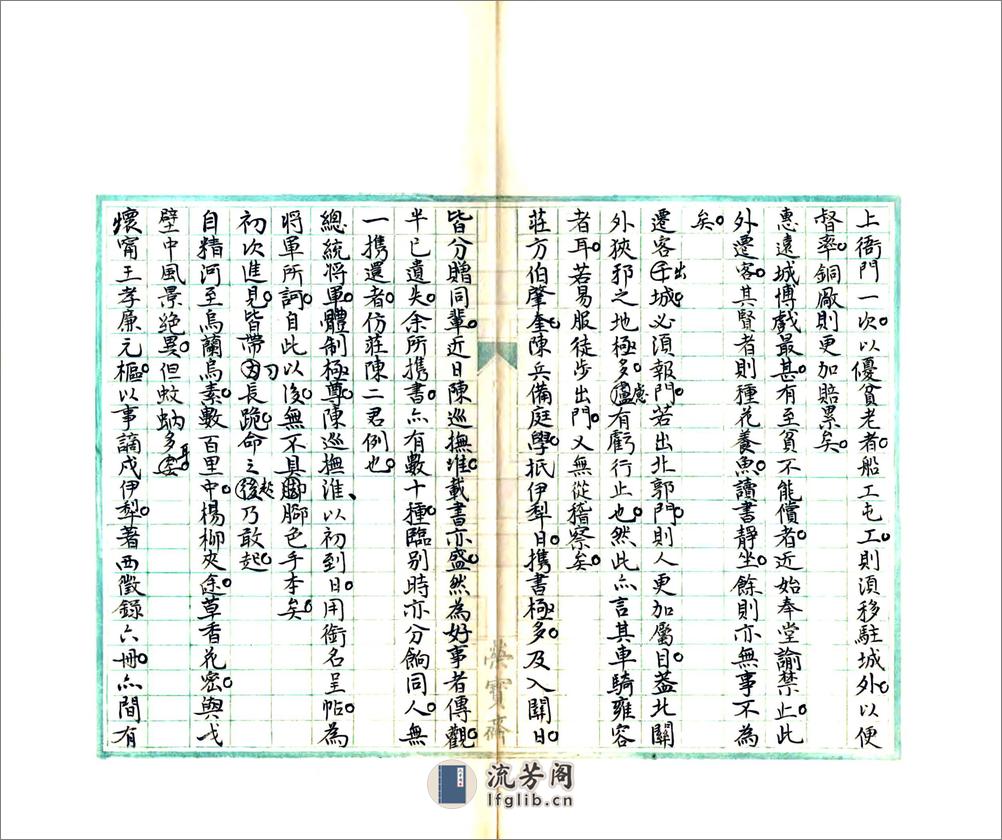 上衙門一次。以優貧老者。船工屯工。則須移駐城外。以便
督率。銅廠則更加賠累矣。
惠遠城博戲最甚。有至貧不能償者。近始奉堂諭禁止。此
外遷客。其賢者則種花養魚。讀書靜坐。餘則亦無事不為
矣。
遷客出子城。必須報門。若出北郭門。則人更加屬目。蓋北關
外狹邪之地極多。慮有虧行止也。然此亦言其車騎雍容
者耳。若易服徒步出門。又無從稽察矣。
莊方伯肇奎。陳兵備庭學。抵伊犁日。携書極多。及入關日。
皆分贈同輩。近日陳巡撫淮。載書亦盛。然為好事者傳觀。
半已遺失。余所携書。亦有數十種。臨别時亦分餉同人。無
一携還者。仿莊陳二君例也。
總統將軍。體制極尊。陳巡撫淮、以初到日。用銜名呈帖。為
將軍所訶。自此以後。無不具腳色手本矣。
初次進見。皆帶刀長跪。命之起。乃敢起。
自精河至烏蘭烏素。數百里中。楊柳夾途。草香花密。與戈
壁中風景絶異。但蚊蚋多耳。
懷甯王孝廉元樞。以事謫戍伊犁。著西徵錄六冊。亦間有
榮寶齋
流芳阁
lfglib.cn